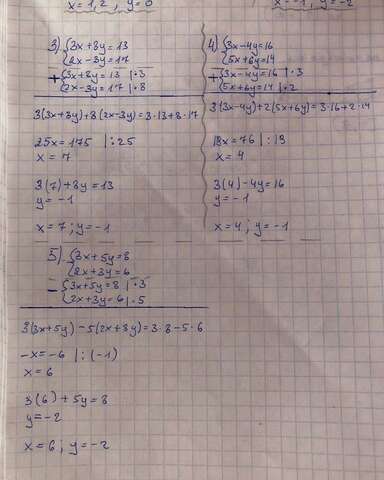 x = 1,2 , y = 0
x = -1 , y = -2
3) {3x + 8y = 13
{2x - 3y = 17
+ {3x + 8y = 13 | · 3
{2x - 3y = 17 | · 8
3(3x + 8y) + 8(2x - 3y) = 3 · 13 + 8 · 17
25x = 175 | : 25
x = 7
3(7) + 8y = 13
y = -1
x = 7 ; y = -1
4) {3x - 4y = 16
{5x + 6y = 14
+ {3x - 4y = 16 | · 3
{5x + 6y = 14 | · 2
3(3x - 4y) + 2(5x + 6y) = 3 · 16 + 2 · 14
19x = 76 | : 19
x = 4
3(4) - 4y = 16
y = -1
x = 4 ; y = -1
5) {3x + 5y = 8
{2x + 3y = 6
- {3x + 5y = 8 | · 3
{2x + 3y = 6 | · 5
3(3x + 5y) - 5(2x + 3y) = 3 · 8 - 5 · 6
-x = -6 | : (-1)
x = 6
3(6) + 5y = 8
y = -2
x = 6 ; y = -2